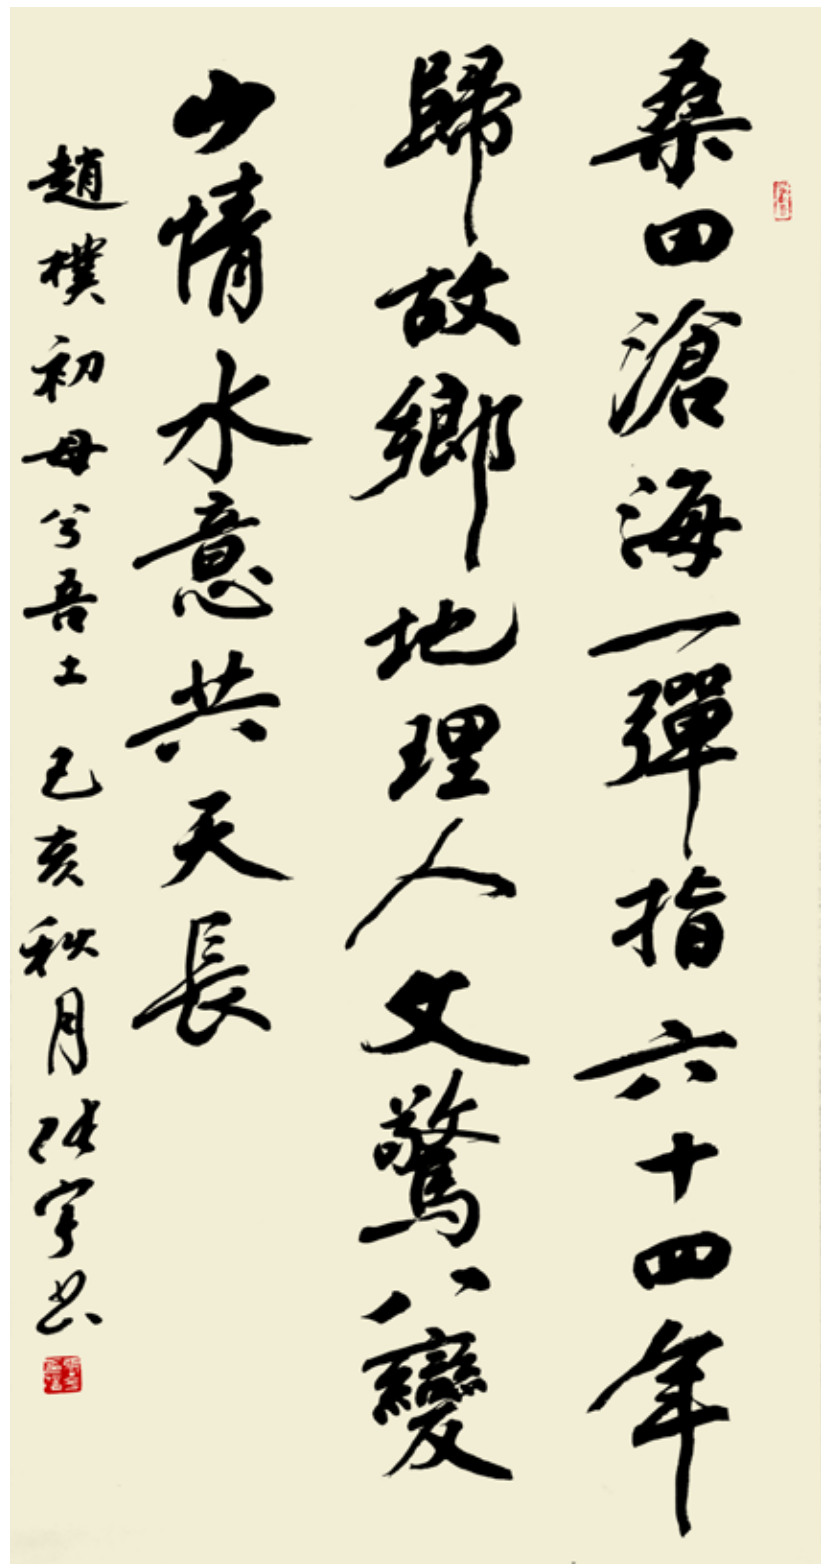 桑田滄海一彈指六十四年
歸故鄉地理人文驚八變
山情水意共天長
趙樸初母兮吾土 己亥秋月張宇書